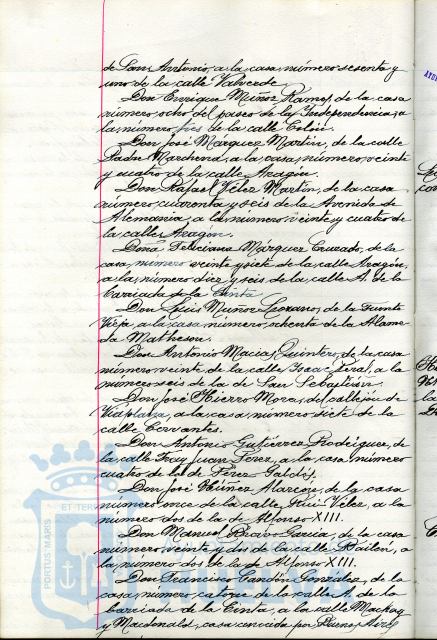 de San Antonio, a la casa número sesenta y
uno de la calle Valverde.
Don Enrique Muñoz Ramos, de la casa
número ocho del paseo de la Independencia, a
la número tres de la calle Colón.
Don José Márquez Martín, de la calle
Padre Marchena, a la casa número veinte
y cuatro de la calle Aragón.
Don Rafael Vélez Martín, de la casa
número cuarenta y seis de la Avenida de
Alemania, a la número veinte y cuatro de
la calle Aragón.
Doña Feliciana Márquez Cruzado, de la
casa número veinte y siete de la calle Aragón,
a la número diez y seis de la calle A. de la
barriada de la Cinta.
Don Luis Muñoz Lozano, de la Fuente
Vieja, a la casa número ochenta de la Alame-
da Matheson.
Don Antonio Macías Quintero, de la casa
número veinte de la calle Isaac Peral, a la
número seis de la de San Sebastián.
Don José Hierro Mora, del callejón de
Viaplana, a la casa número siete de la
calle Cervantes.
Don Antonio Gutiérrez Rodríguez, de
la calle Fray Juan Pérez, a la casa número
cuatro de la de Pérez Galdós.
Don José Núñez Alarcón, de la casa
número once de la calle Ruiz Vélez, a la
número dos de la de Alfonso XIII.
Don Manuel Bravo García, de la casa
número veinte y dos de la calle Bailén, a
la número dos de la de Alfonso XIII.
Don Francisco Candón González, de la
casa número catorce de la calle A. de la
barriada de la Cinta, a la calle Mackay
y Macdonald, casa conocida por
PORTUS MARIS
ET TER